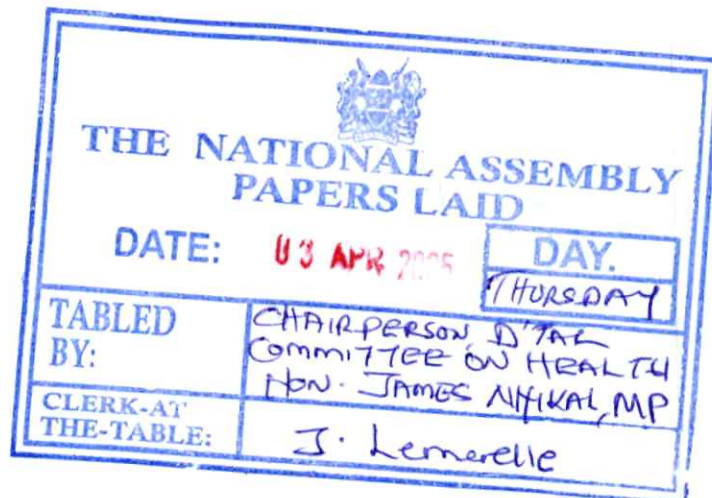 THE NATIONAL ASSEMBLY
PAPERS LAID
DATE: 03 APR 2025
DAY.
THURSDAY
TABLED
BY:
CHAIRPERSON, D'TAL
COMMITTEE ON HEALTH
HON. JAMES NYIKAL, MP
CLERK-AT
THE-TABLE:
J. Lemerelle